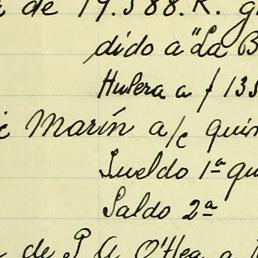 de 19.588.K. g
dido a "La B
Hulera a f 135
Marín a/c quin
Sueldo 1ª qu
Saldo 2ª
de P. A. O'Hea a